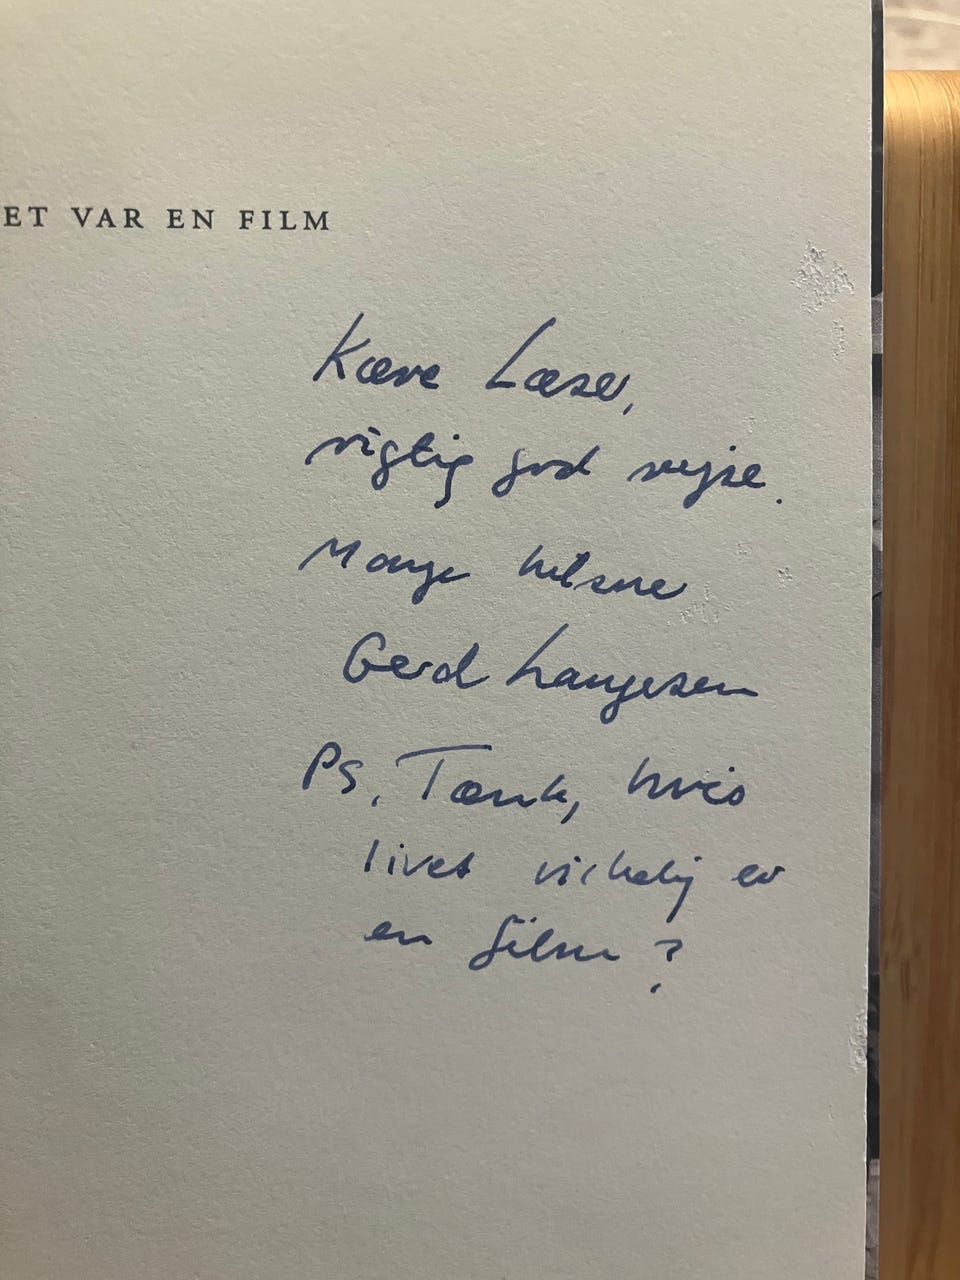 ET VAR EN FILM
Kære Læser,
rigtig god rejse.
Mange hilsner
Gerd Laugesen
Ps. Tænk, hvis
livet virkelig er
en film?